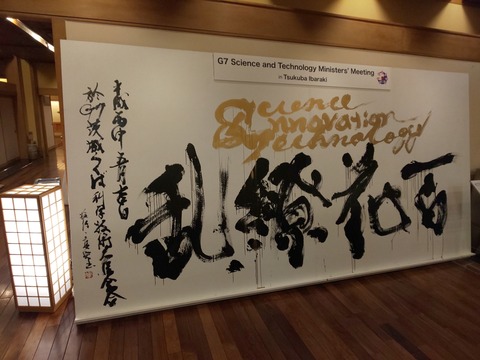 G7 Science and Technology Ministers' Meeting
in Tsukuba Ibaraki
Science
& Innovation
Technology
百花繚乱
平成丙申五月吉日
茨城つくば科学技術大臣会合